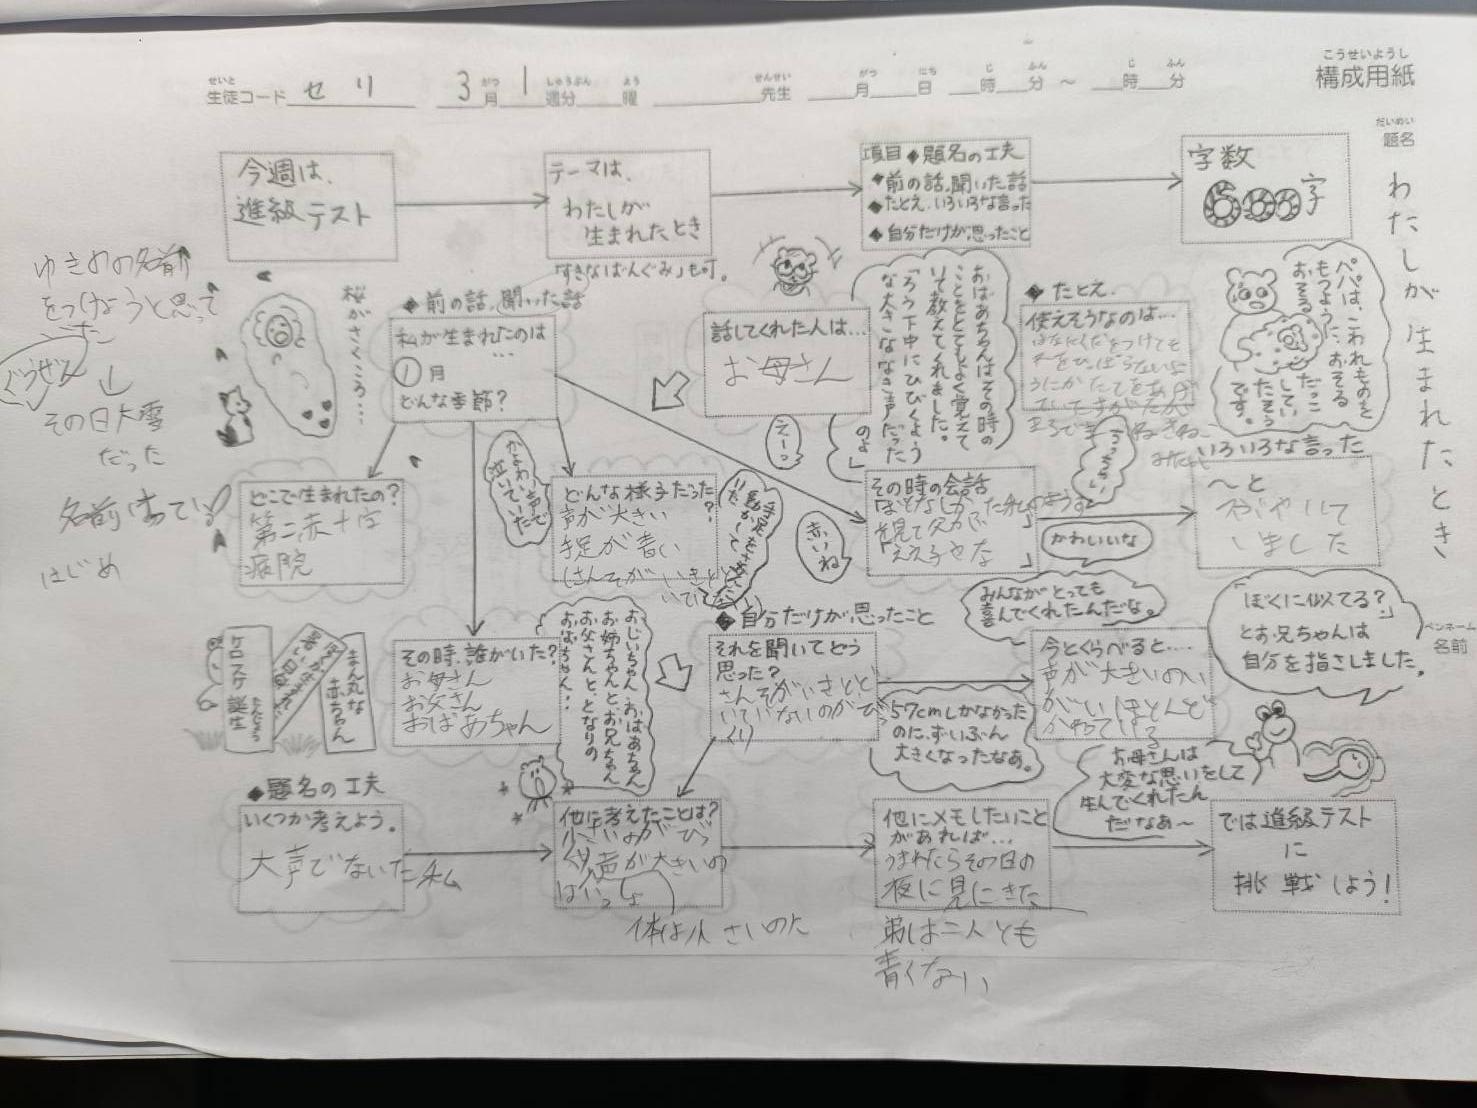 こうせいようし
構成用紙
せいと
生徒コード セリ 3月 1週分 曜 先生 月 日 時 分 ~ 時 分
だいめい
題名
わたしが生まれたとき
ペンネーム
名前
今週は、
進級テスト
テーマは、
わたしが
生まれたとき
「すきなばんぐみ」も可。
項目◆題名の工夫
◆前の話、聞いた話
◆たとえ、いろいろな言った
◆自分だけが思ったこと
字数
600字
ゆきめの名前
をつけようと思って
いた
ぐうぜん
その日大雪
だった
名前はあている
はじめ
桜がさくころ…
◆前の話、聞いた話
私が生まれたのは
…
①月
どんな季節?
話してくれた人は…
お母さん
おばあちゃんはその時の
ことをとてもよく覚えて
いて教えてくれました。
「ろう下中にひびくよう
な大きななき声だった
のよ」
えーっ
◆たとえ
使えそうなのは…
パパは、こわれものを
もつように、おそる
おそる
だっこ
してい
たそう
です。
うるさい
どこで生まれたの?
第二赤十字
病院
かよわい声で
泣いていた
どんな様子だった?
声が大きい
手足をさかんに
動かして
いた
赤いね
その時の会話
を見て父が
「ええ子やな
」
かわいいな
いろいろな言った
~と
つぶやいて
いました
みんながとっても
喜んでくれたんだな。
「ぼくに似てる?」
とお兄ちゃんは
自分を指さしました。
ケロスケ誕生
たんじょう
まん丸な
赤ちゃん
その時、誰がいた?
お母さん
お父さん
おばあちゃん
おじいちゃん、おばあちゃん
お姉ちゃんと、お兄ちゃん
お父さんと、となりの
おばちゃん…
◆自分だけが思ったこと
それを聞いてどう
思った?
さんそがいきとど
いていないのがびっ
くり
57cmしかなかった
のに、ずいぶん
大きくなったなあ。
今とくらべると…
声が大きいのい
がいほとんど
かわってる
お母さんは
大変な思いをして
生んでくれたん
だなあ~
◆題名の工夫
いくつか考えよう。
大声でないた私
他に考えたことは?
小さいのがびっ
くり声が大きいの
はいっしょ
体は小さいのた
他にメモしたいこと
があれば…
うまれたらその日の
夜に見にきた
弟は二人とも
青くない
では進級テスト
に
挑戦しよう!